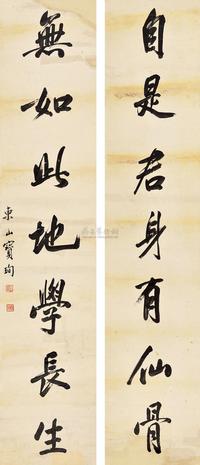 自是君身有仙骨
無如此地學長生
東山寶珣